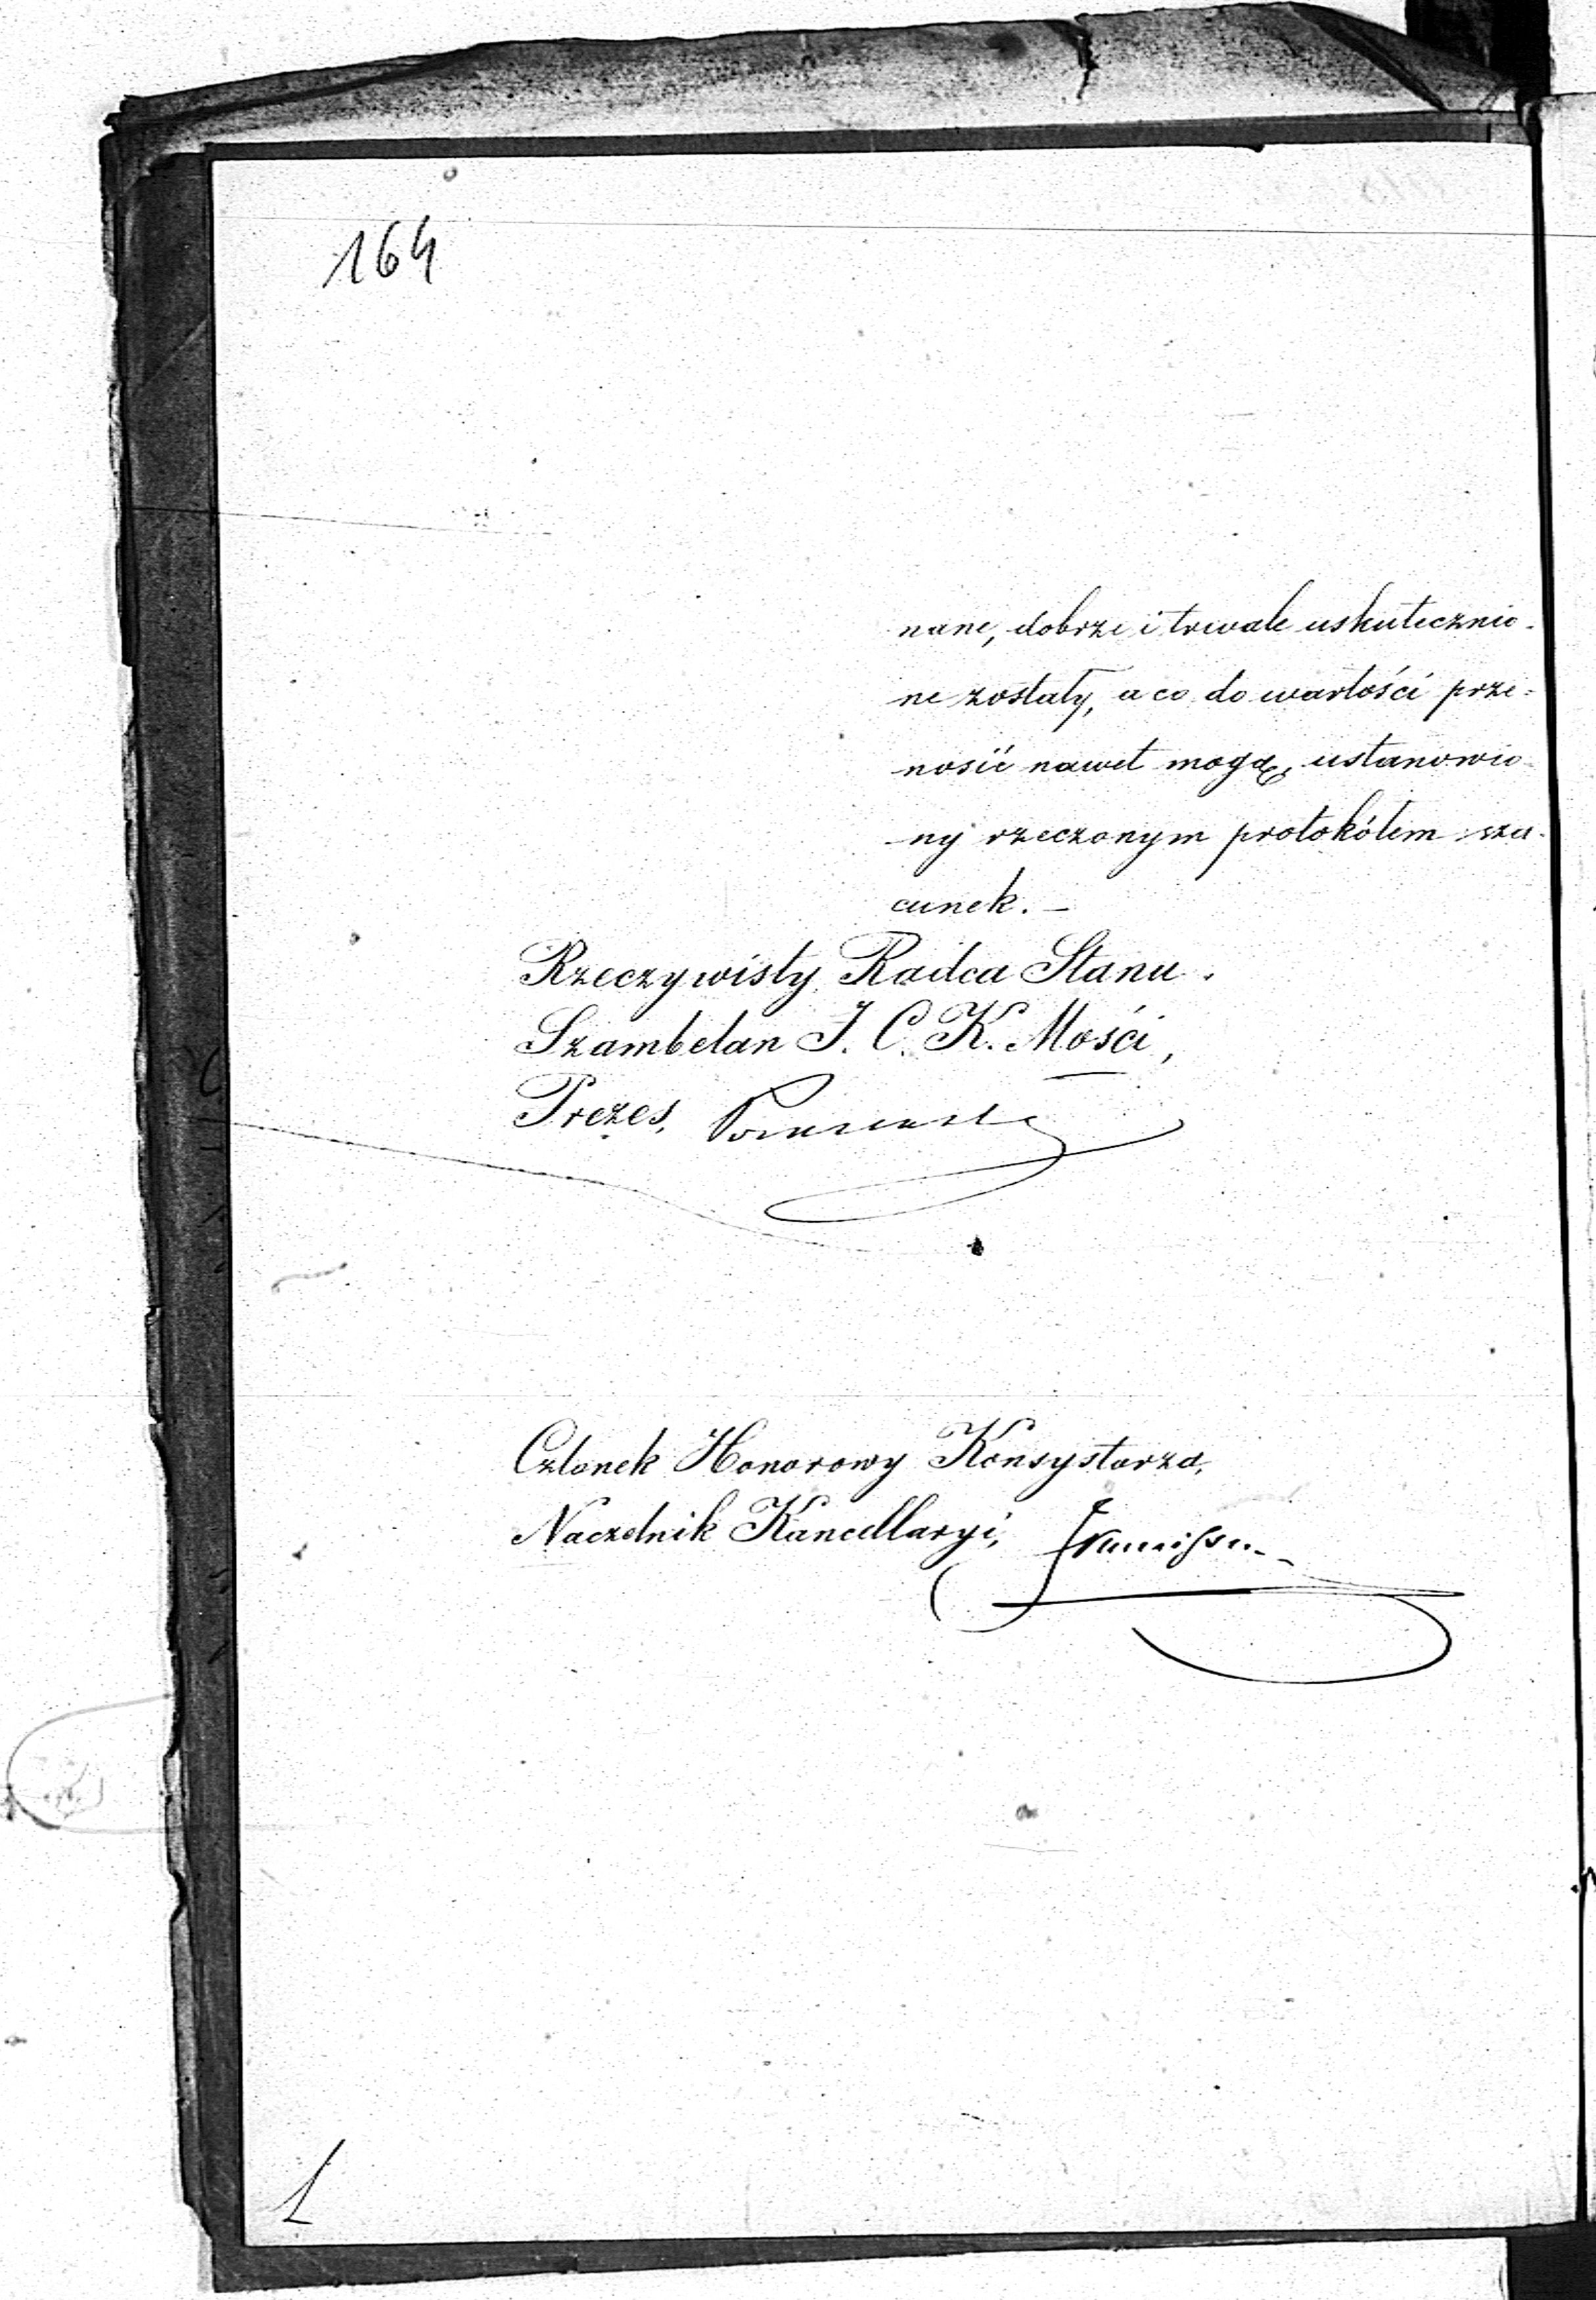 164
nane, dobrze i trwale uskutecznio-
ne zostały, a co do wartości prze-
nosić nawet mogą, ustanowio-
ny rzeczonym protokółem sza-
cunek. –
Rzeczywisty Radca Stanu.
Szambelan J. C. K. Mości,
Prezes,
Członek Honorowy Konsystorza,
Naczelnik Kancellaryi,
1